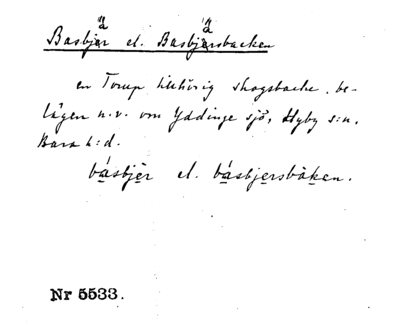 Basbjär el. Basbjärsbacken
en Torup tillhörig skogsbacke, be-
lägen n.v. om Yddinge sjö, Hyby s:n,
Bara h:d.
básbjèr el. básbjersbàken.
Nr 5533.